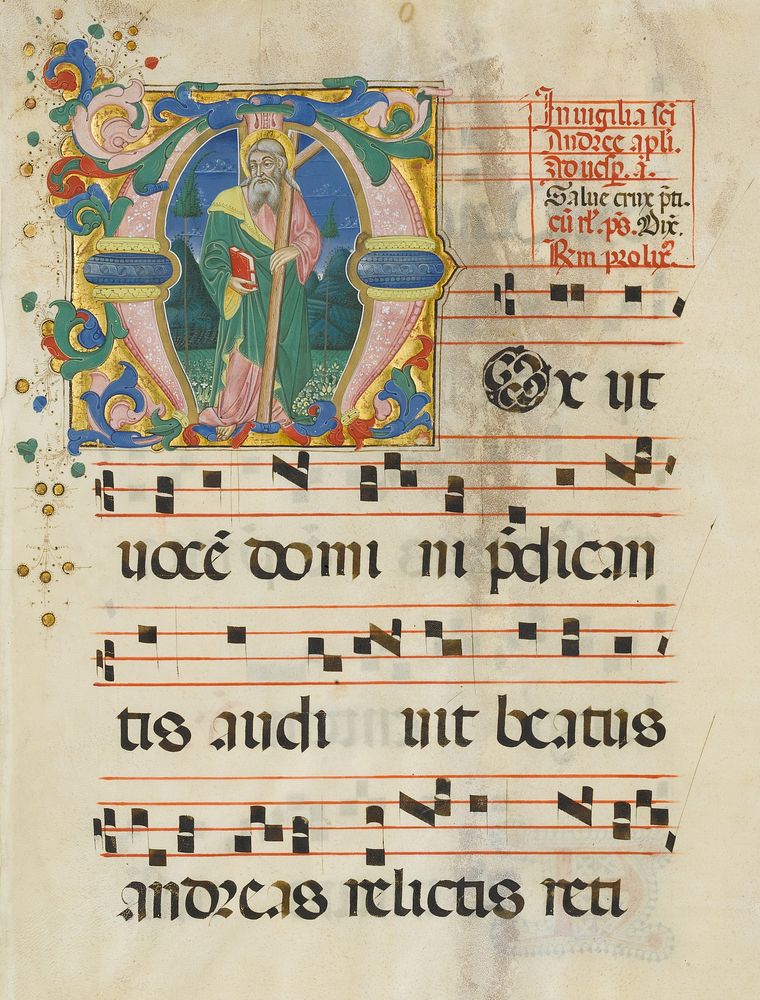 In uigilia sci
Andree apli.
Ad uesp. a.
Salue crux p̄ti.
cū rl̄. p̄s. Dix̄.
Rm prolix.
MOx ut
uocē domi ni p̄dican
tis audi uit beatus
andreas relictis reti